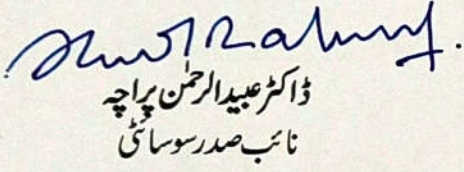 ڈاکٹر عبیدالرحمٰن پراچہ
نائب صدر سوسائٹی